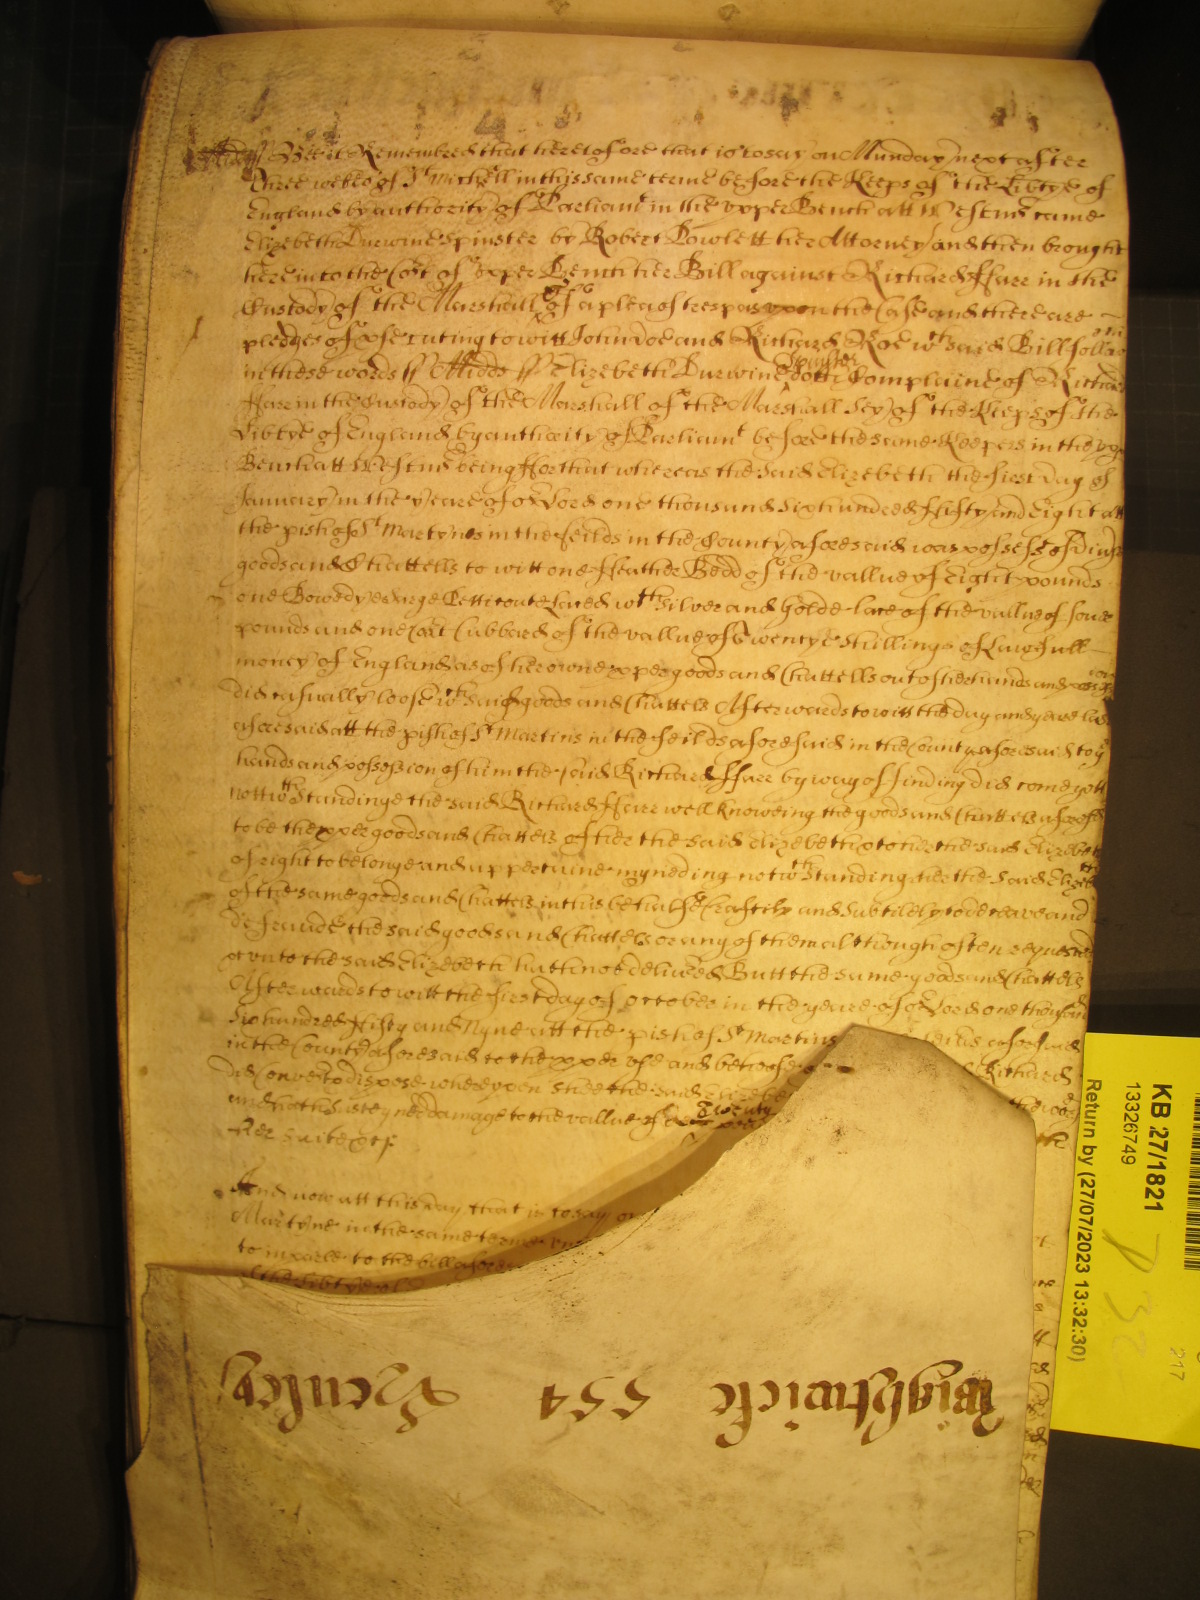 Midds ss Bee it Remembred that heretofore that is to say on Munday next after
three weekes of St Michell in this same terme before the Keeps of the Libtye of
England by authority of Parliamt in the upper Bench att Westmr came
Elizebeth Durwine Spinster by Robert Powlett her Attorney and then brought
here into the Cort of upper Bench her Bill against Richard Ffarr in the
Custody of the Marshall &c of a plea of trespas upon the Case and there are
pledges of psecuting to witt John Doe and Richard Roe wch said Bill followes
in these words ss Midds ss Elizebeth Durwine Spinster doth Complaine of Richard
Ffarr in the Custody of the Marshall of the Marshallsey of the Keeps of the
Libtye of England by authority of Parliamt before the same Keepers in the upp
Bench att Westmr being Ffor that whereas the said Elizebeth the first day of
January in the yeare of or Lord one thousand Six hundred Fifty and Eight att
the pish of St Martynes in the feilds in the County aforesaid was possess of
goods and Chattells to witt one Ffeather Bedd of the vallue of Eight pounds
one Petticoate laced wth silver and Golde lace of the vallue of foure
pounds and one Cort Cubbard of the vallue of Twenty Shillings of Lawfull
money of England as of her owne pper goods and Chattells out of her hands and
did casually loose wch said goods and Chattels Afterwards to witt the day and yeare last
aforesaid att the pish of St Martins in the feilds aforesaid in the County aforesaid to ye
hands and possession of him the said Richard Ffarr by way of finding did come yett
nottwthstandinge the said Richard Ffarr well knoweing the goods and Chattels aforesd
to be the pper goods and Chattels of her the said Elizebeth & to her the said Elizebeth
of right to belonge and appertaine myneding notwthstanding her the said Elizeb
of the same goods and Chattels in this behalfe Craftily and Subtilely to deceave and
defraude the said goods and Chattels or any of them although often requested
&c unto the said Elizebeth hath not delivered Butt the same goods and Chattells
Afterwards to witt the first day of October in the yeare of or Lord one thousand
Six hundred Fifty and Nyne att the pish of St Martins feilds aforesaid
in the County aforesaid to the pper use and behoofe Richard
did Convert & dispose whereupon shee the said Elizebe
and hath susteyned damage to the vallue of Twenty
her suite &c

And now att this day that is to say on
Martyne in the same terme
to imparle to the bill afores
of the Libtye of
Wightwick 554 Henley
KB 27/1821
13326749
Return by (27/07/2023 13:32:30)
217